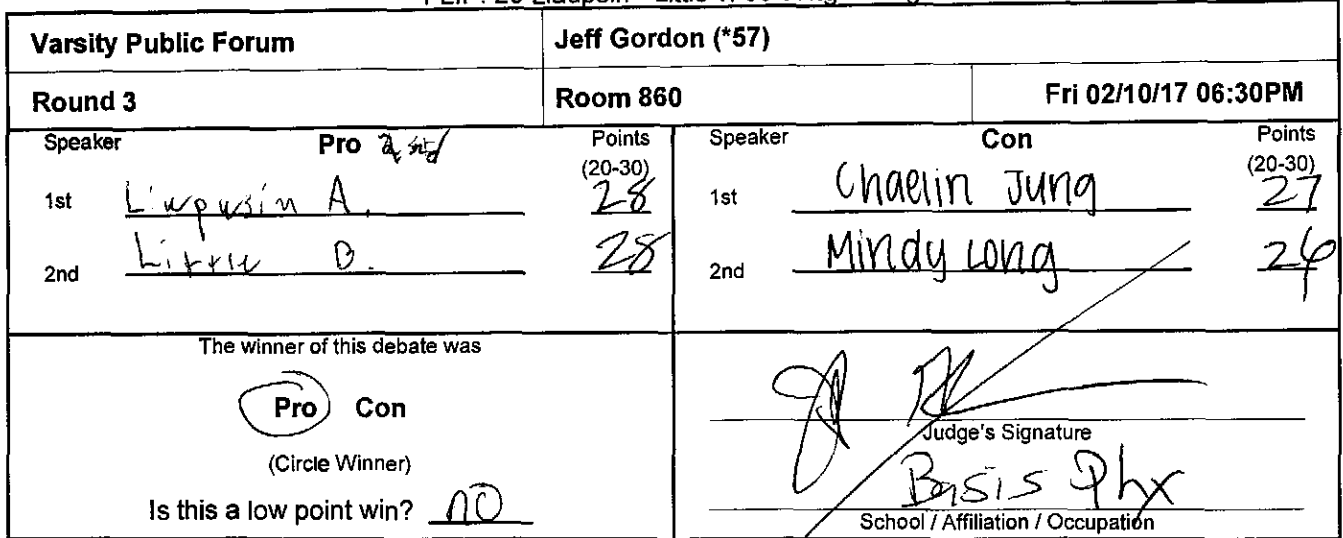 Varsity Public Forum
Jeff Gordon (*57)
Round 3
Room 860
Fri 02/10/17 06:30PM
Speaker Pro Points
(20-30)
1st A. 28
2nd Little B. 28
Speaker Con Points
(20-30)
1st Chaelin Jung 27
2nd Mindy Long
The winner of this debate was
Pro Con
(Circle Winner)
Is this a low point win? no
Judge's Signature
Basis Phx
School / Affiliation / Occupation